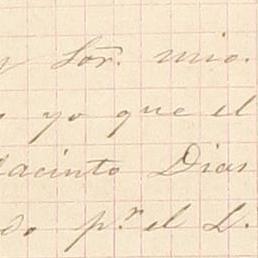 y Sor. mio.
yo que el
Jacinto Dias
do pr. el L.